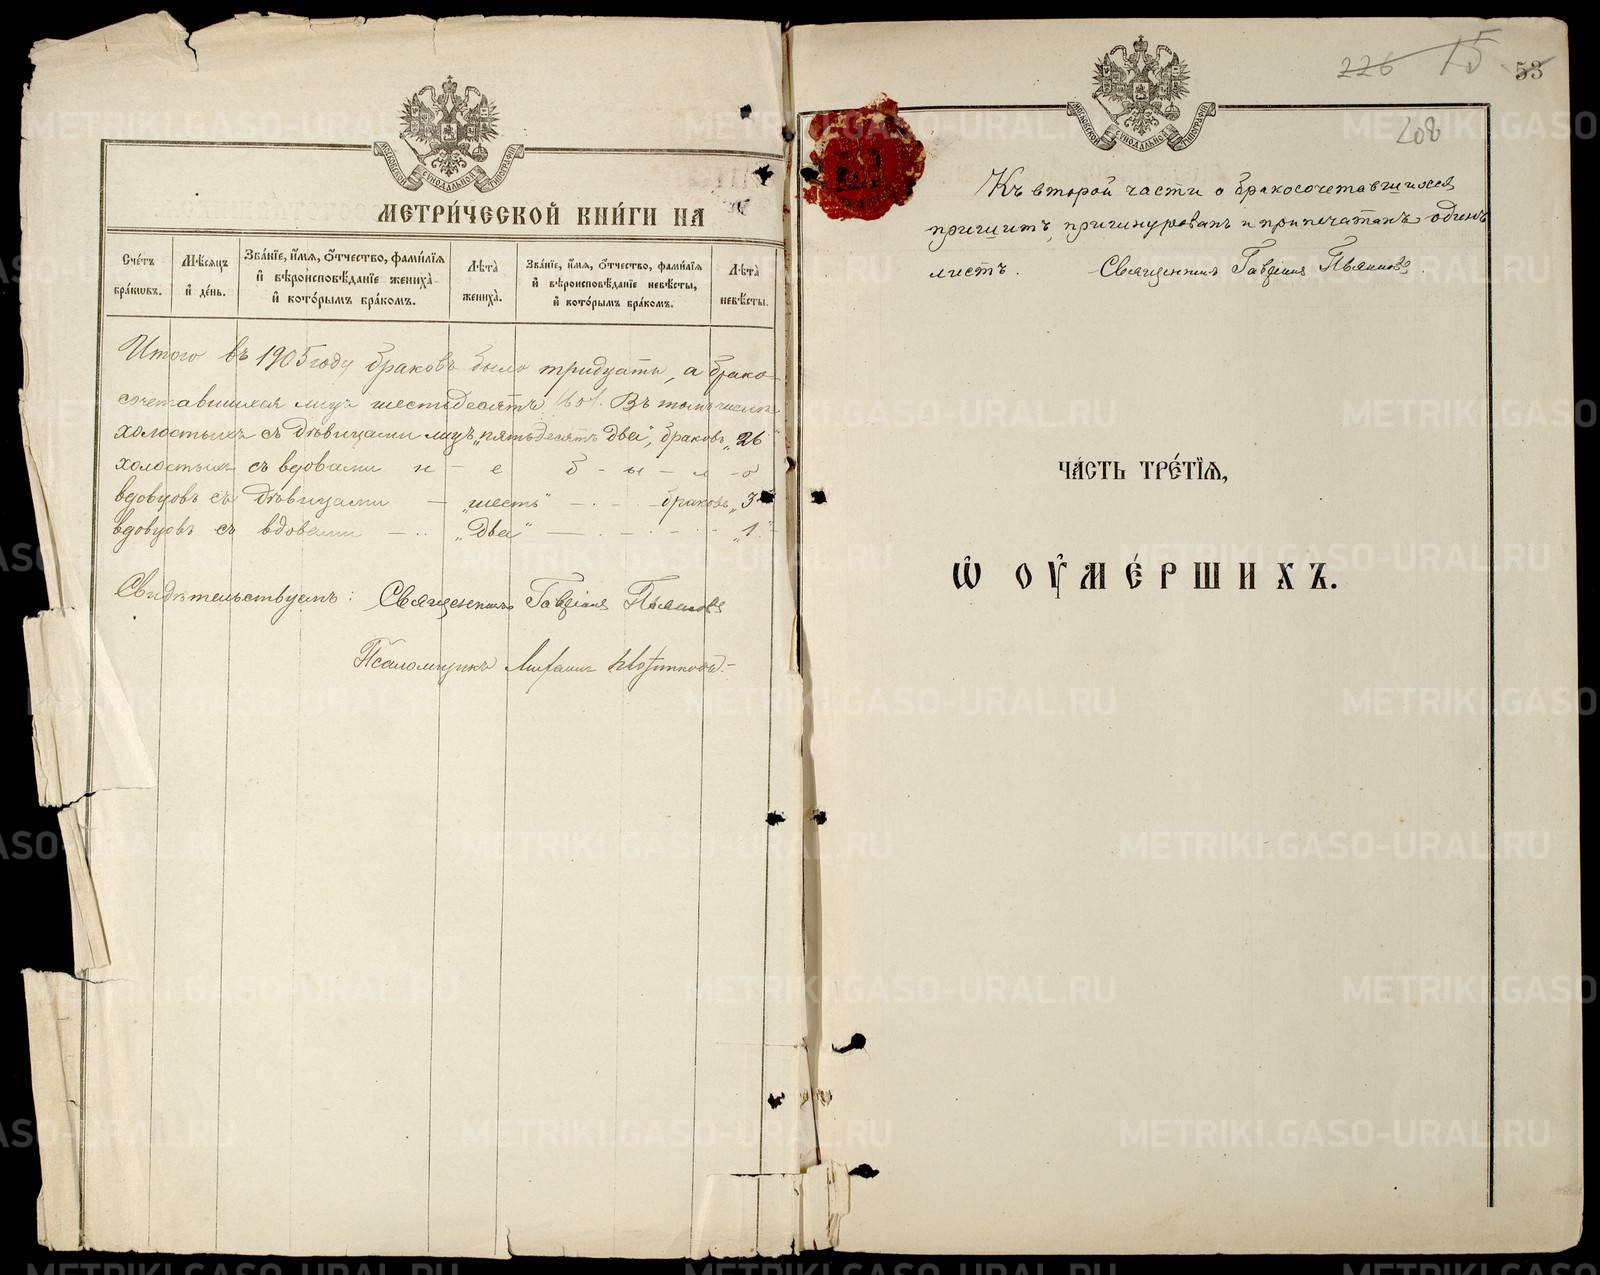 МОСКОВСКОЙ СѴНОДАЛЬНОЙ ТИПОГРАФІИ
МЕТРИ́ЧЕСКОЙ КНИ́ГИ НА
Сче́тъ бра́кѡвъ.
Мѣ́сяцъ и҆ де́нь.
Зва́нїе, и҆́мя, ѻ҆́тчество, фами́лїя и҆ вѣроисповѣ́данїе жениха̀ и҆ кото́рымъ бра́комъ.
Лѣ́та жениха̀.
Зва́нїе, и҆́мя, ѻ҆́тчество, фами́лїя и҆ вѣроисповѣ́данїе невѣ́сты, и҆ кото́рымъ бра́комъ.
Лѣ́та невѣ́сты.
Итого въ 1905 году браковъ было тридцать, а брако-
сочетавшихся лицъ шестьдесятъ "60". Въ томъ числѣ
холостыхъ съ дѣвицами лицъ "пятьдесятъ два", браковъ "26"
холостыхъ съ вдовами н - е б - ы - л - о
вдовцовъ съ дѣвицами — "шесть" — браковъ "3"
вдовцовъ съ вдовами — "два" — "1"
Свидѣтельствуемъ: Священникъ Гавріилъ Пьянковъ
Псаломщикъ Михаилъ
226 15 53
МОСКОВСКОЙ СѴНОДАЛЬНОЙ ТИПОГРАФІИ
208
Къ второй части о бракосочетавшихся
пришитъ, пришнурованъ и припечатанъ одинъ
листъ. Священникъ Гавріилъ Пьянковъ.
ЧА́СТЬ ТРЕ́ТЇѦ,
Ѡ҆ ОУ҆МЕ́РШИХЪ.
METRIKI.GASO-URAL.RU